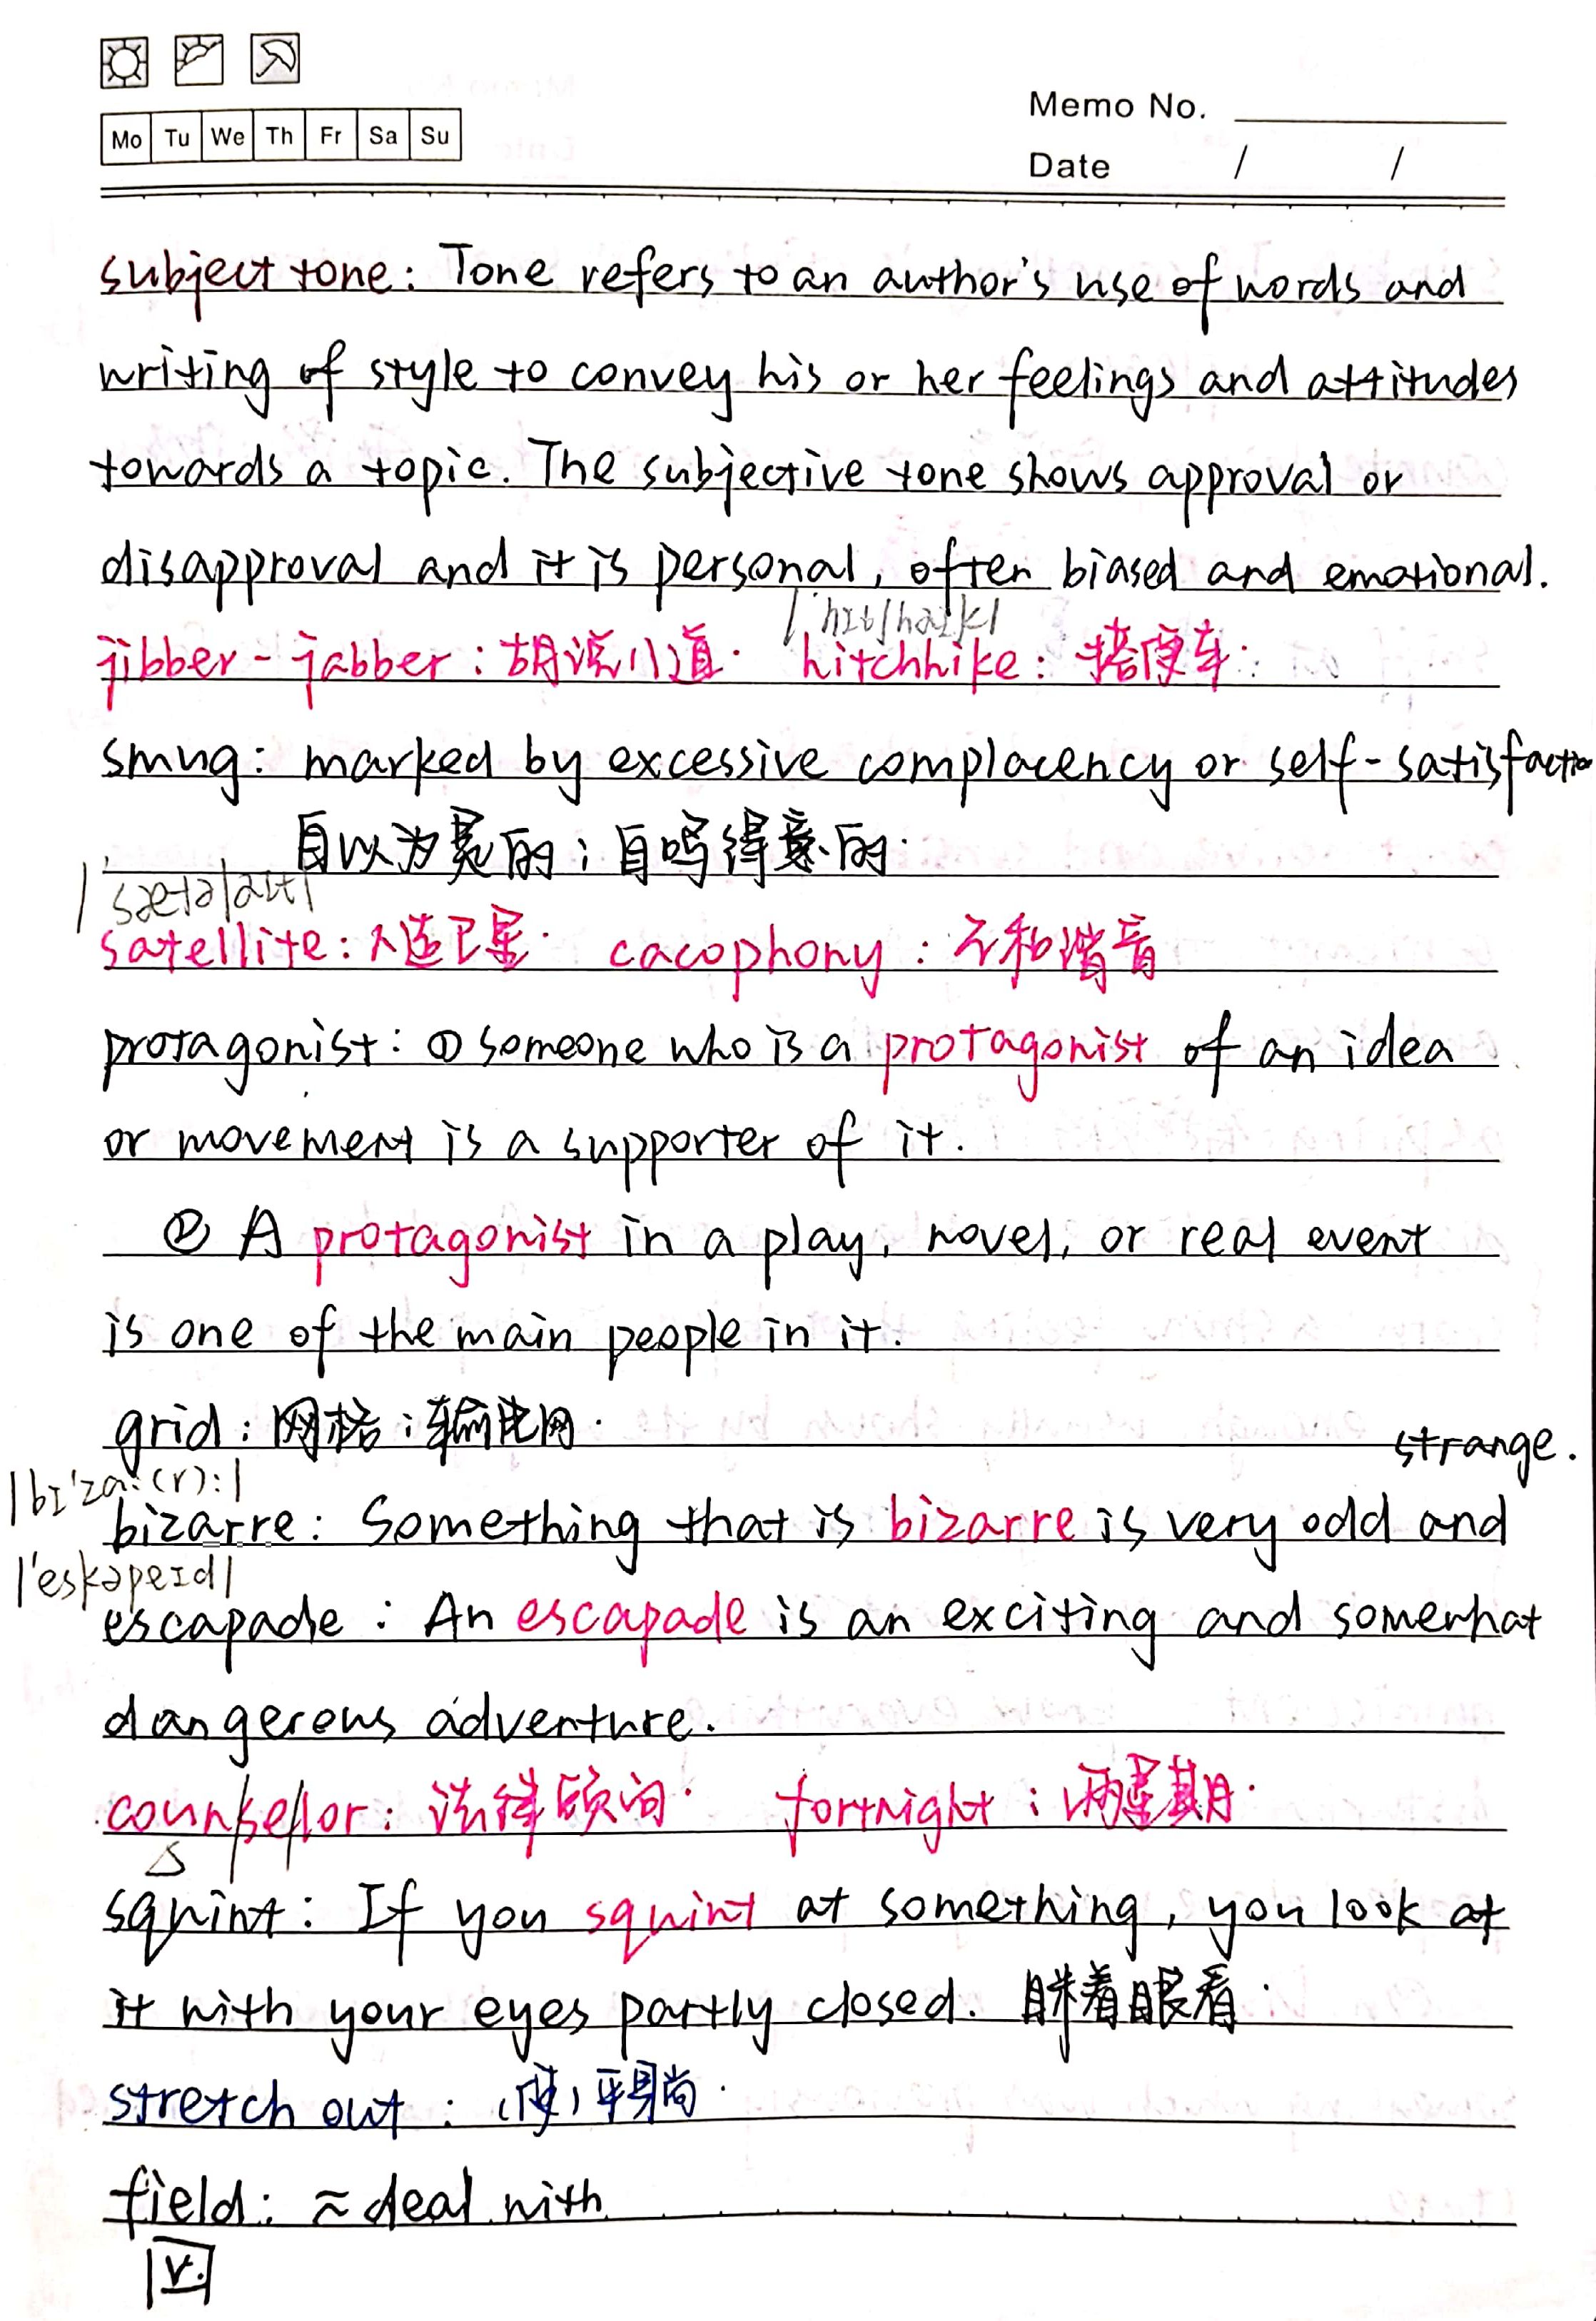 Mo Tu We Th Fr Sa Su
Memo No.
Date / /
subject tone: Tone refers to an author's use of words and
writing of style to convey his or her feelings and attitudes
towards a topic. The subjective tone shows approval or
disapproval and it is personal, often biased and emotional.
jibber-jabber: 胡说八道. hitchhike: 搭便车.
smug: marked by excessive complacency or self-satisfaction
自以为是的; 自鸣得意的.
|'sætəlaɪt|
satellite: 人造卫星. cacophony: 不和谐音
protagonist: ① someone who is a protagonist of an idea
or movement is a supporter of it.
② A protagonist in a play, novel, or real event
is one of the main people in it.
grid: 网格; 输电网.
strange.
bizarre: Something that is bizarre is very odd and
|'eskəpeɪd|
escapade: An escapade is an exciting and somewhat
dangerous adventure.
counsellor: 法律顾问. fortnight: 两星期.
squint: If you squint at something, you look at
it with your eyes partly closed. 眯着眼看.
stretch out: (使)平躺.
field: ≈ deal with
v.